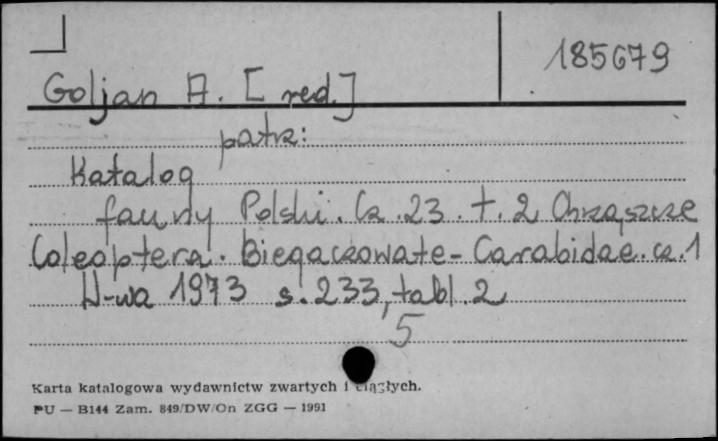 185679
Goljan A. [red.]
patrz:
Katalog
fauny Polski. Cz. 23. t. 2 Chrząszcze
Coleoptera. Biegaczowate - Carabidae. cz. 1
W-wa 1973 s. 233, tabl. 2
5
Karta katalogowa wydawnictw zwartych i ciągłych.
PU — B144 Zam. 849/DW/On ZGG — 1991